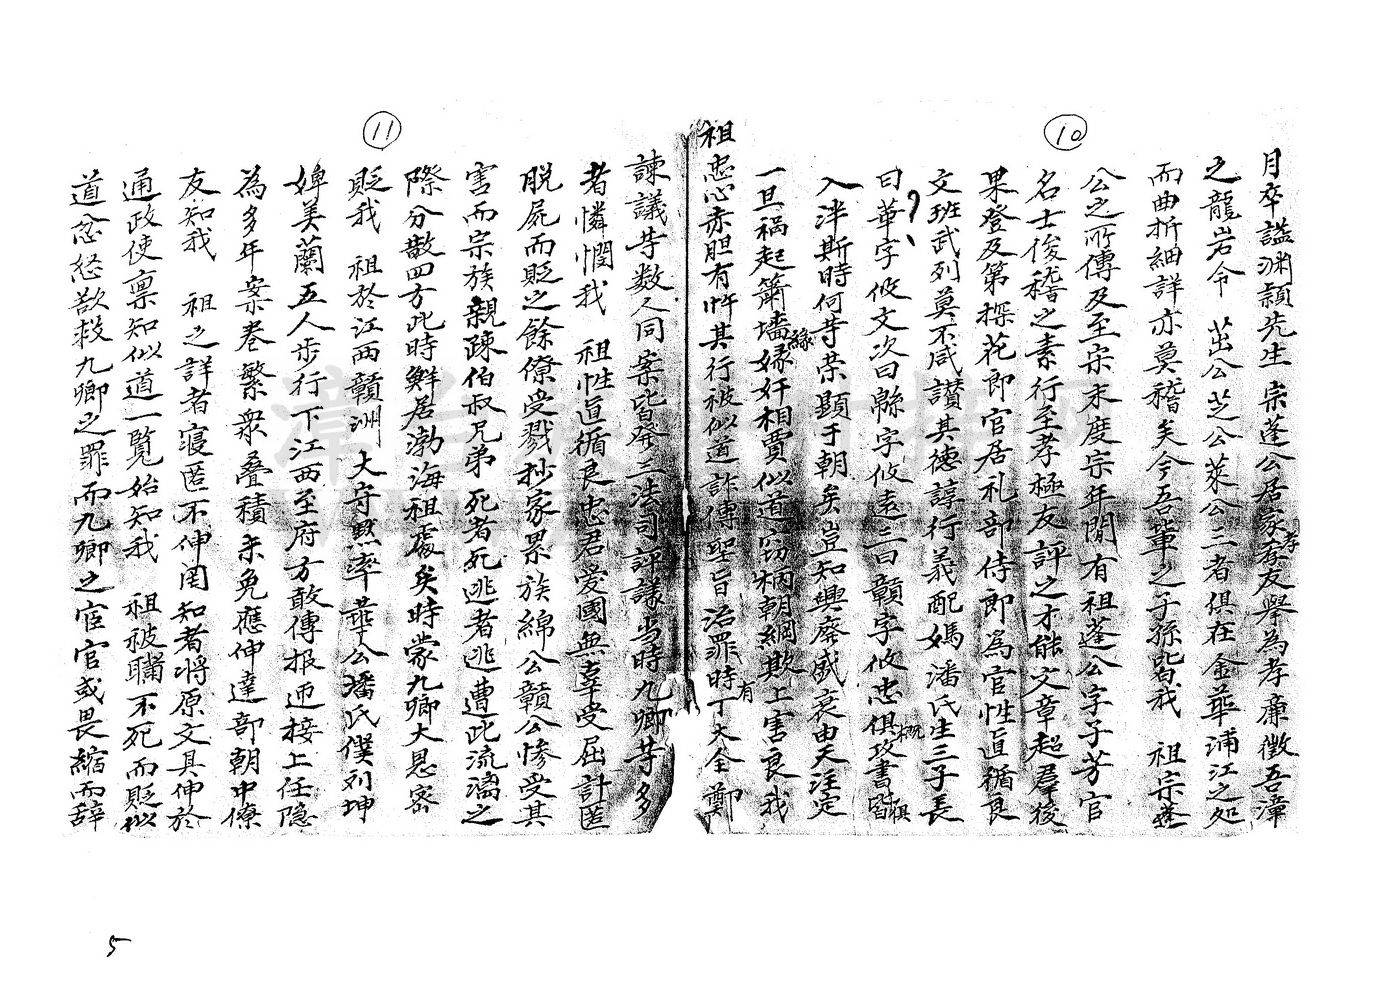 10
月卒謚渊頴先生 宗蓬公居家孝友舉為孝廉徵吾漳
之龍岩令 茁公芝公萊公三者俱在金華浦江之处
而曲折細詳亦莫稽矣今吾輩之子孫皆我 祖宗蓬
公之所傳及至宗末度宗年間有祖蓬公字子芳官
名士俊稽之素行至孝極友評之才能文章超羣後
果登及第探花郎官居礼部侍郎為官性道循良
文班武列莫不咸讃其德諄行義配媽潘氏生三子長
曰華字攸文次曰緜字攸遠三曰贛字攸忠俱攻書皆
入泮斯時何等荣顯于朝矣豈知興廢盛衰由天注定
一旦禍起簫墻緣奸相賈似道窃柄朝綱欺上害良我
祖忠心赤胆有忤其行被似道詐傳聖旨治罪時有丁大全鄭
11
諫議等数人同案皆發三法司評議当時九卿等多
者憐憫我 祖性道循良忠君愛國無辜受屈計匿
脱屍而貶之餘僚受戮抄家累族綿公贛公惨受其
害而宗族親疎伯叔兄弟死者死逃者逃曹此流漓之
際分散四方此時鮮居渤海祖處矣時蒙九卿大恩密
貶我 祖於江西贛洲 大守黙率華公潘氏僕列坤
婢美蘭五人步行下江西至府方敢傳报迎接上任隐
為多年案卷繁衆叠積未免應伸達部朝中僚
友知我 祖之詳者寢匿不伸罔知者將原文具伸於
通政使禀知似道一覧始知我 祖被瞞不死而貶似
道忿怒欲救九卿之罪而九卿之宦官或畏縮而辞
5